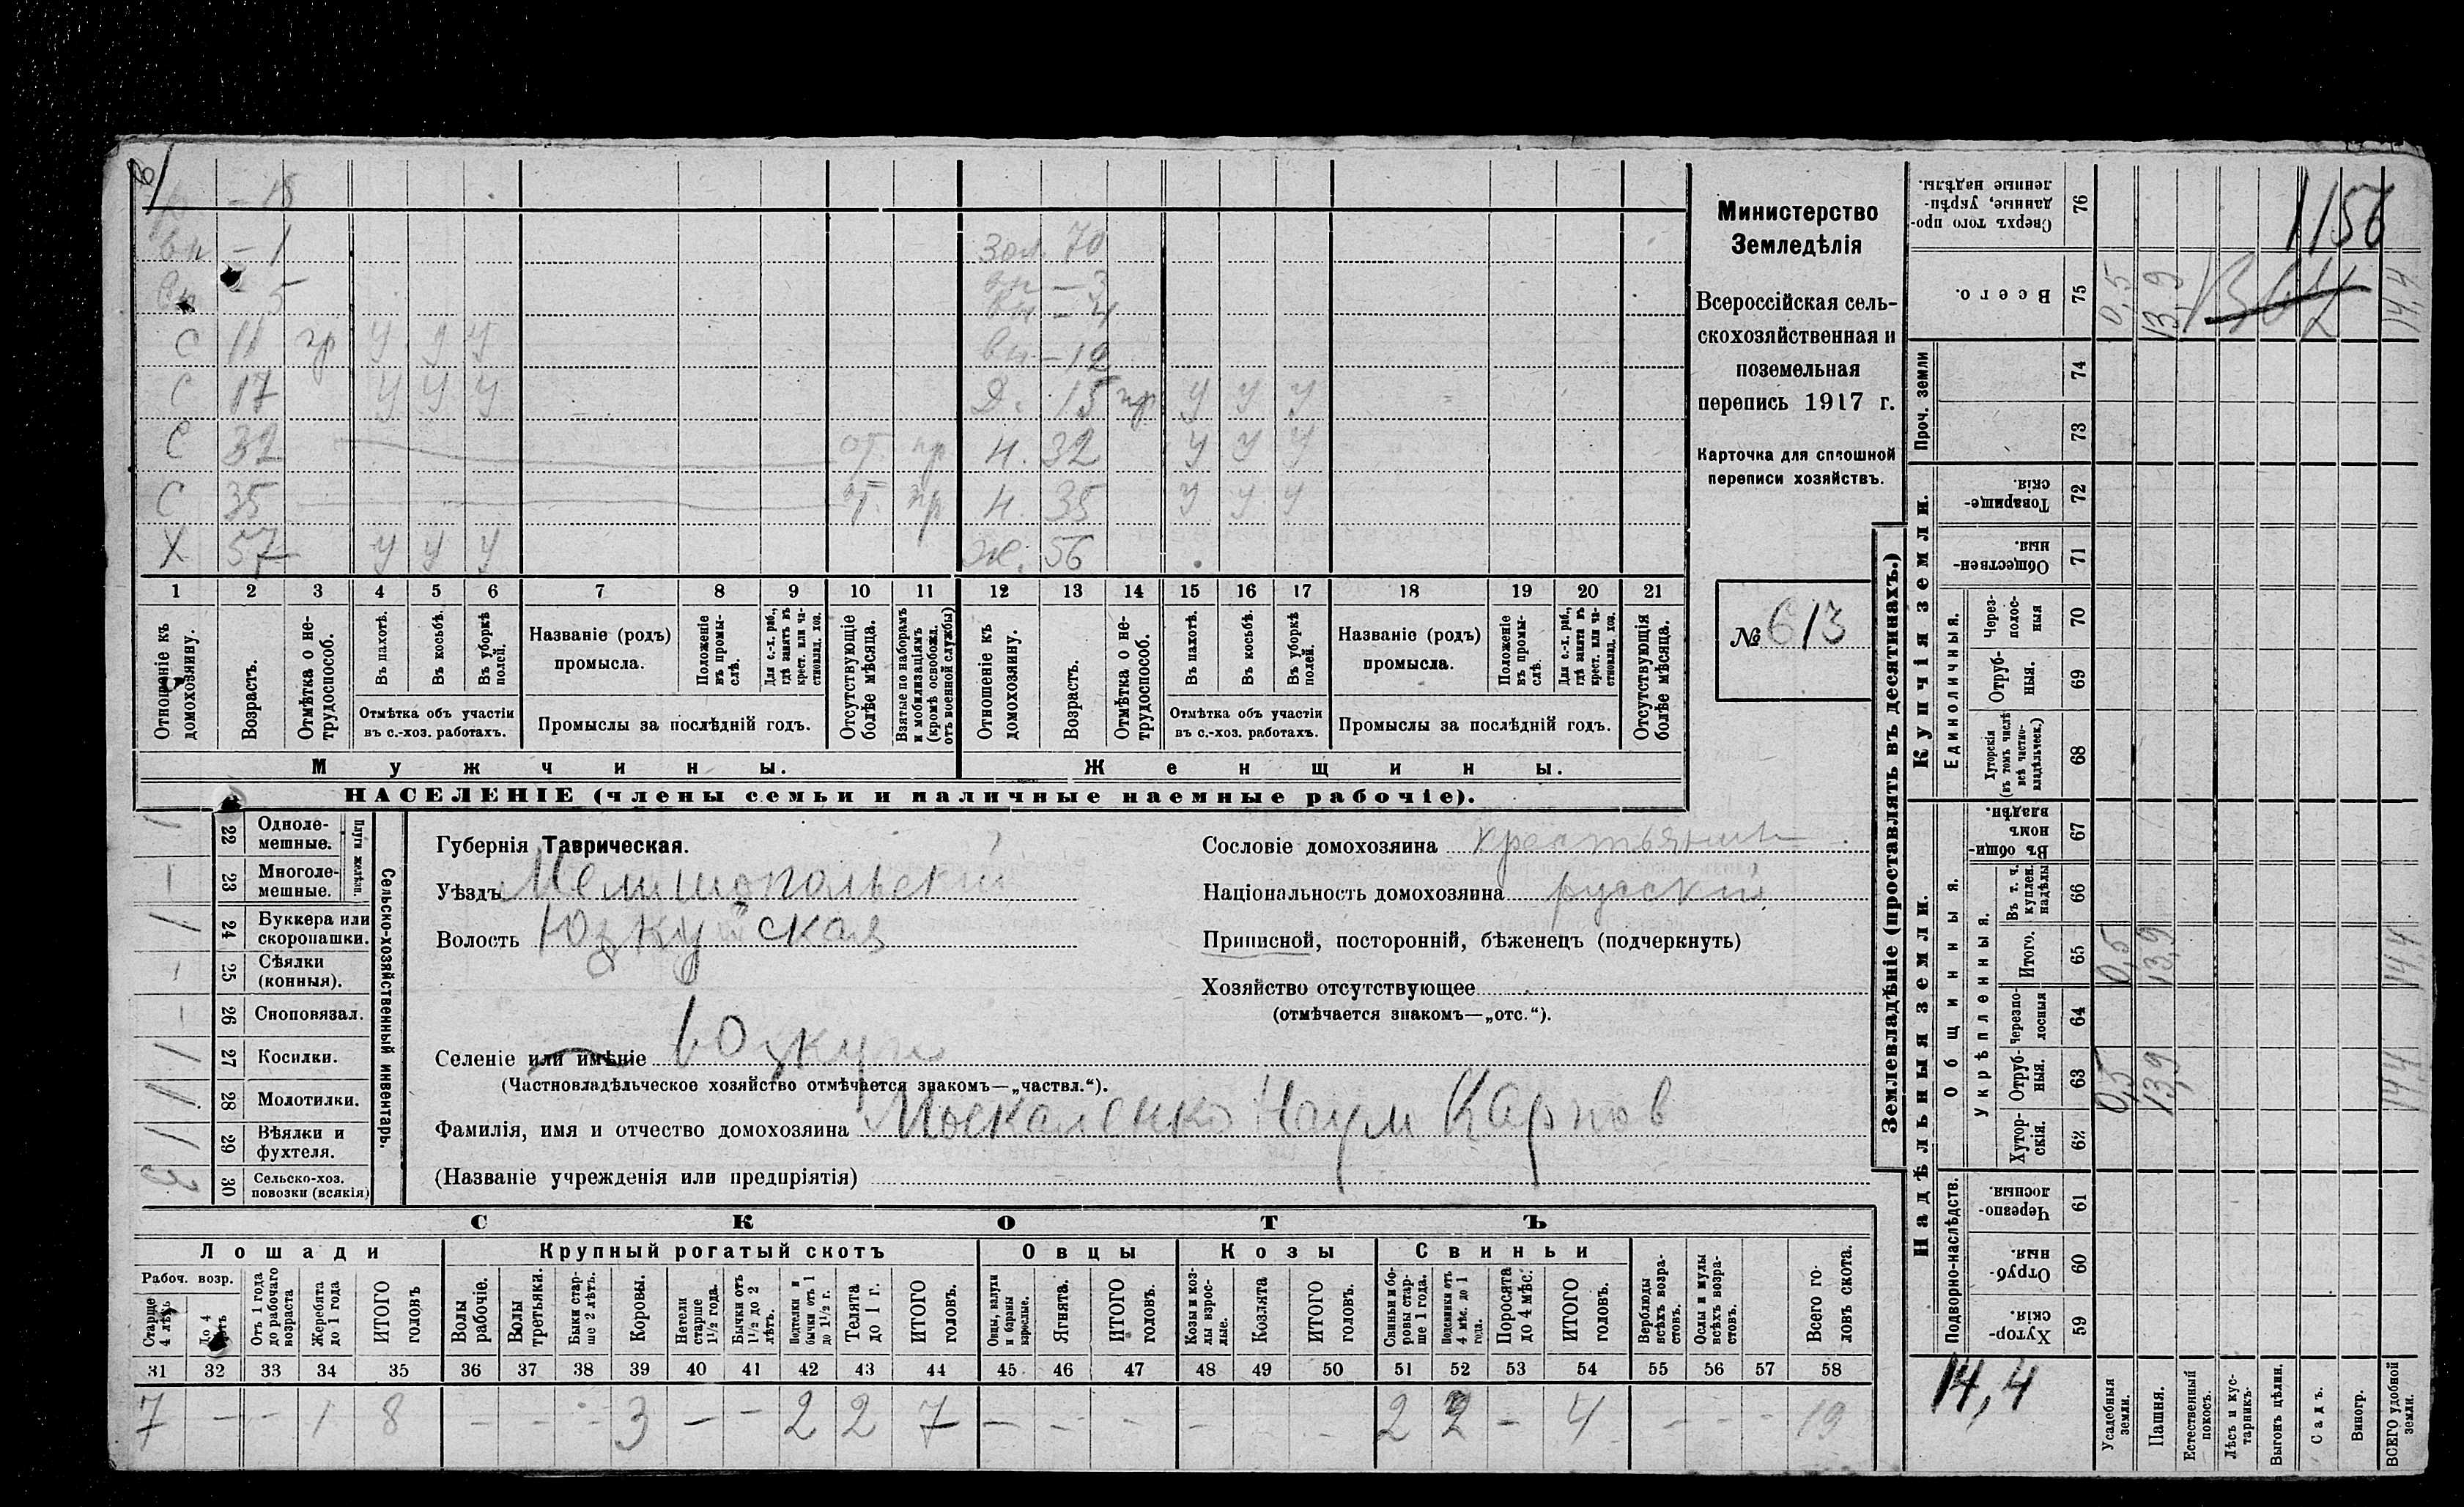 - 18
вн - 1 зол. 70
вн - 5 вн - 3
вн - 4
С 11 нр У У У вн - 12
С 17 У У У Д. 15 нр У У У
С 32 от. пр Н. 32 У У У
С 35 от. пр Н. 35 У У У
Х 57 У У У Ж. 56
1 2 3 4 5 6 7 8 9 10 11 12 13 14 15 16 17 18 19 20 21
Отношеніе къ домохозяину.
Возрастъ.
Отмѣтка о нетрудоспособ.
Въ пахотѣ.
Въ косьбѣ.
Въ уборкѣ полей.
Отмѣтка объ участіи
въ с.-хоз. работахъ.
Названіе (родъ)
промысла.
Положеніе въ промы-слѣ.
Для с.-х. раб., гдѣ занятъ въ крест. или ча-стновлад. хоз.
Промыслы за послѣдній годъ.
Отсутствующіе болѣе мѣсяца.
Взятые по наборамъ и мобилизаціямъ (кромѣ освобожд. отъ военной службы)
Отношеніе къ домохозяину.
Возрастъ.
Отмѣтка о не-трудоспособ.
Въ пахотѣ.
Въ косьбѣ.
Въ уборкѣ полей.
Отмѣтка объ участіи
въ с.-хоз. работахъ.
Названіе (родъ)
промысла.
Положеніе въ промы-слѣ.
Для с.-х. раб., гдѣ занята въ крест. или ча-стновлад. хоз.
Промыслы за послѣдній годъ.
Отсутствующія болѣе мѣсяца.
Мужчины. Женщины.
НАСЕЛЕНІЕ (члены семьи и наличные наемные рабочіе).
Министерство
Земледѣлія
Всероссійская сель-
скохозяйственная и
поземельная
перепись 1917 г.
Карточка для сплошной
переписи хозяйствъ.
№ 613
Сельско-хозяйственный инвентарь.
Плуги желѣзн.
1 22 Одноле-
мешные.
- 23 Многоле-
мешные.
1 24 Буккера или
скоропашки.
- 25 Сѣялки
(конныя).
- 26 Сноповязал.
1 27 Косилки.
1 28 Молотилки.
1 29 Вѣялки и
фухтеля.
2 30 Сельско-хоз.
повозки (всякія)
Губернія Таврическая.
Уѣздъ Мелитопольскій
Волость Юзкуйская
Селеніе или имѣніе Юзкуи
(Частновладѣльческое хозяйство отмѣчается знакомъ—„частвл.“).
Фамилія, имя и отчество домохозяина Москаленко Наум Карпов
(Названіе учрежденія или предпріятія)
Сословіе домохозяина крестьянинъ
Національность домохозяина русский
Приписной, посторонній, бѣженецъ (подчеркнуть)
Хозяйство отсутствующее
(отмѣчается знакомъ—„отс.“).
СКОТЪ
Лошади Крупный рогатый скотъ Овцы Козы Свиньи
Рабоч. возр.
Старше 4 лѣтъ
До 4 лѣтъ
Отъ 1 года до рабочаго возраста
Жеребята до 1 года
ИТОГО головъ
Волы рабочіе.
Волы третьяки.
Быки стар-ше 2 лѣтъ.
Коровы.
Нетели старше 1½ года.
Бычки отъ 1½ до 2 лѣтъ.
Подтелки и бычки отъ 1 до 1½ г.
Телята до 1 г.
ИТОГО головъ.
Овцы, валухи и бараны взрослые.
Ягнята.
ИТОГО головъ.
Козы и коз-лы взрос-лые.
Козлята
ИТОГО головъ.
Свиньи и бо-ровы стар-ше 1 года.
Подсвинки отъ 4 мѣс. до 1 года.
Поросята до 4 мѣс.
ИТОГО головъ.
Верблюды всѣхъ возра-стовъ.
Ослы и мулы всѣхъ возра-стовъ.
Всего го-ловъ скота.
31 32 33 34 35 36 37 38 39 40 41 42 43 44 45 46 47 48 49 50 51 52 53 54 55 56 57 58
7 - - 1 8 - - - 3 - - 2 2 7 - - - - - - 2 2 - 4 - - - 19
Землевладѣніе (проставлять въ десятинахъ.)
Надѣльныя земли. Купчія земли. Проч. земли
Подворно-наслѣдств.
Общинныя.
Укрѣпленныя.
Единоличныя.
76 Сверхъ того про-данные, укрѣп-ленные надѣлы.
1156
75 Всего. 0,5 13,9 14,4
74
73
72 Товарище-скія.
71 Обществен-ныя.
70 Через-полос-ныя
69 Отруб-ныя.
68 Хуторскія (въ томъ числѣ всѣ частно-владѣльческ.)
67 Въ общи-номъ владѣн.
66 Въ т. ч. куплен. надѣлы
65 Итого. 0,5 13,9 14,4
64 Черезпо-лосныя
63 Отруб-ныя. 0,5 13,9 14,4
62 Хутор-скія.
61 Черезпо-лосныя.
60 Отруб-ныя.
59 Хутор-скія.
14,4
Усадебныя земли.
Пашня.
Естественный покосъ.
Лѣсъ и кус-тарникъ.
Выгонъ цѣлин.
Садъ.
Виногр.
ВСЕГО удобной земли.